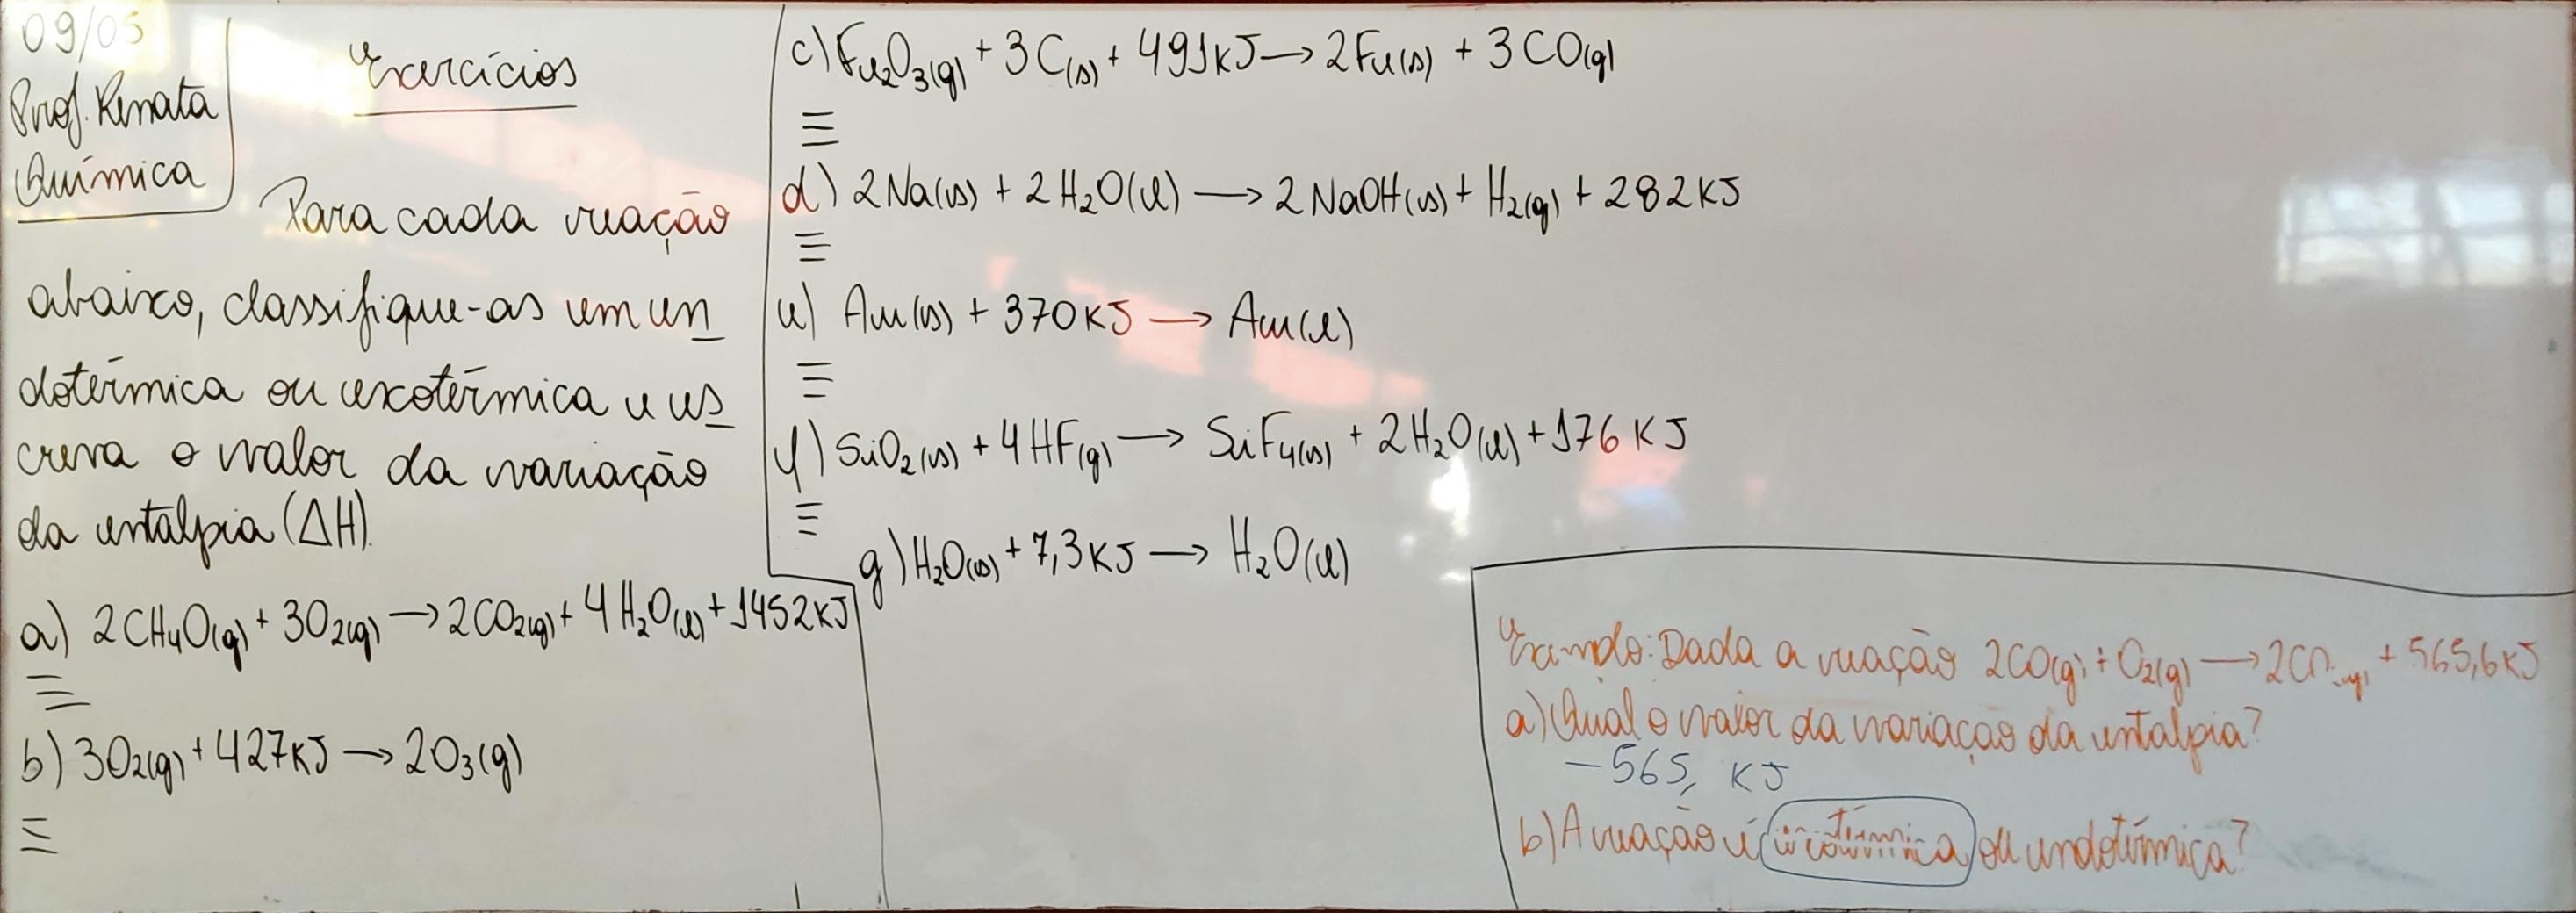 09/05
Prof. Renata
Química
Exercícios
Para cada reação
abaixo, classifique-as em en
dotérmica ou exotérmica e es
creva o valor da variação
da entalpia (ΔH).
a) 2CH₄O(g) + 3O₂(g) → 2CO₂(g) + 4H₂O(l) + 1452kJ
b) 3O₂(g) + 427kJ → 2O₃(g)
c) Fe₂O₃(g) + 3C(s) + 491kJ → 2Fe(s) + 3CO(g)
d) 2Na(s) + 2H₂O(l) → 2NaOH(s) + H₂(g) + 282kJ
e) Au(s) + 370kJ → Au(l)
f) SiO₂(s) + 4HF(g) → SiF₄(s) + 2H₂O(l) + 176KJ
g) H₂O(s) + 7,3kJ → H₂O(l)
Exemplo: Dada a reação 2CO(g) + O₂(g) → 2CO₂(g) + 565,6kJ
a) Qual o valor da variação da entalpia?
-565, KJ
b) A reação é exotérmica ou endotérmica?